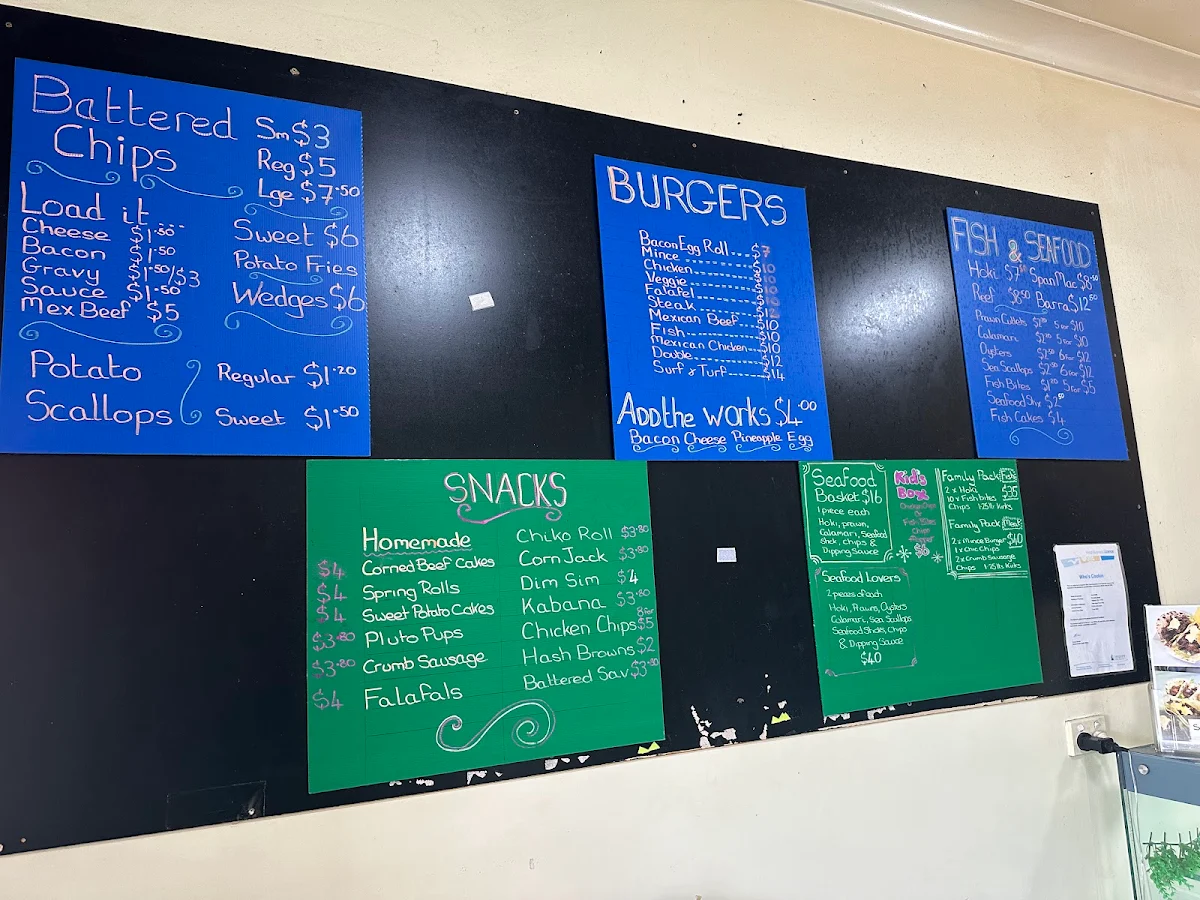 Battered Chips
Sm $3
Reg $5
Lge $7.50
Load it...
Cheese $1.50
Bacon $1.50
Gravy $1.50/$3
Sauce $1.50
Mex Beef $5
Sweet $6
Potato Fries
Wedges $6
Potato Scallops
Regular $1.20
Sweet $1.50
BURGERS
Bacon Egg Roll.... $7
Mince $10
Chicken $10
Veggie $10
Falafel $10
Steak
Mexican Beef $10
Fish $10
Mexican Chicken $10
Double $12
Surf & Turf $14
Add the works $4.00
Bacon Cheese Pineapple Egg
FISH & SEAFOOD
Hoki Span Mac $8.50
Reef $8.50 Barra $12.50
Prawn Cutlets 5 for $10
Calamari 5 for $10
Oysters $2.50 6 for $12
Sea Scallops $2.50 6 for $12
Fish Bites $1.20 5 for $5
Seafood Stix
Fish Cakes $4
SNACKS
Homemade
$4 Corned Beef Cakes
$4 Spring Rolls
$4 Sweet Potato Cakes
$3.80 Pluto Pups
$3.80 Crumb Sausage
$4 Falafals
Chiko Roll $3.80
Corn Jack $3.80
Dim Sim $4
Kabana $3.80
Chicken Chips 8 for $5
Hash Browns $2
Battered Sav $3.80
Seafood
Basket $16
1 piece each
Hoki, prawn,
Calamari, Seafood
Stick, chips &
Dipping Sauce
Kid's
Box
Fish Bites
Chips
$8
Family Pack Fish
2 x Hoki $35
10 x Fish bites
Chips 1.25 ltr Kirks
Family Pack Meat
2 x Mince Burger $40
1 x Chic Chips
2 x Crumb Sausage
Chips 1.25 ltr Kirks
Seafood Lovers
2 pieces of each
Hoki, Prawns, Oysters
Calamari, Sea Scallops
Seafood Sticks, Chips
& Dipping Sauce
$40